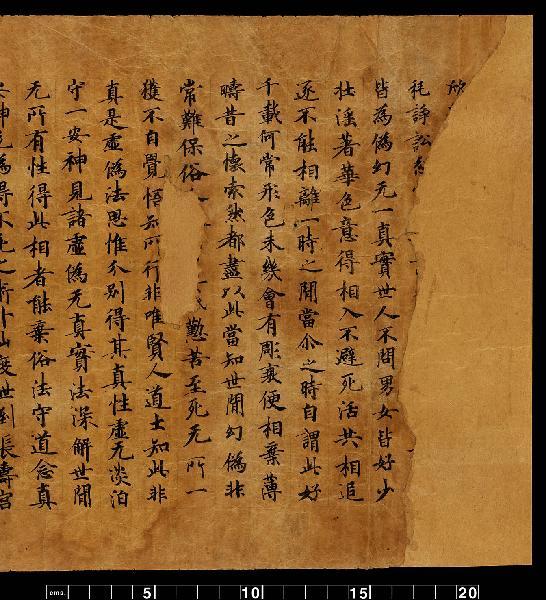 諍訟
皆為偽幻无一真實世人不問男女皆好少
壯滛著華色意得相入不避死活共相追
逐不能相離一時之間當尒之時自謂此好
千載何常形色未幾會有彫衰便相棄薄
疇昔之懷索然都盡以此當知世間幻偽非
常難保俗懃苦至死无所一
獲不自覺悟知所行非唯賢人道士知此非
真是虛偽法思惟分別得其真性虛无淡泊
守一安神見諸虛偽无真實法深解世間
无所有性得此相者能棄俗法守道念真
神為得不死之術升仙度世到長壽宮
cms. 5 10 15 20